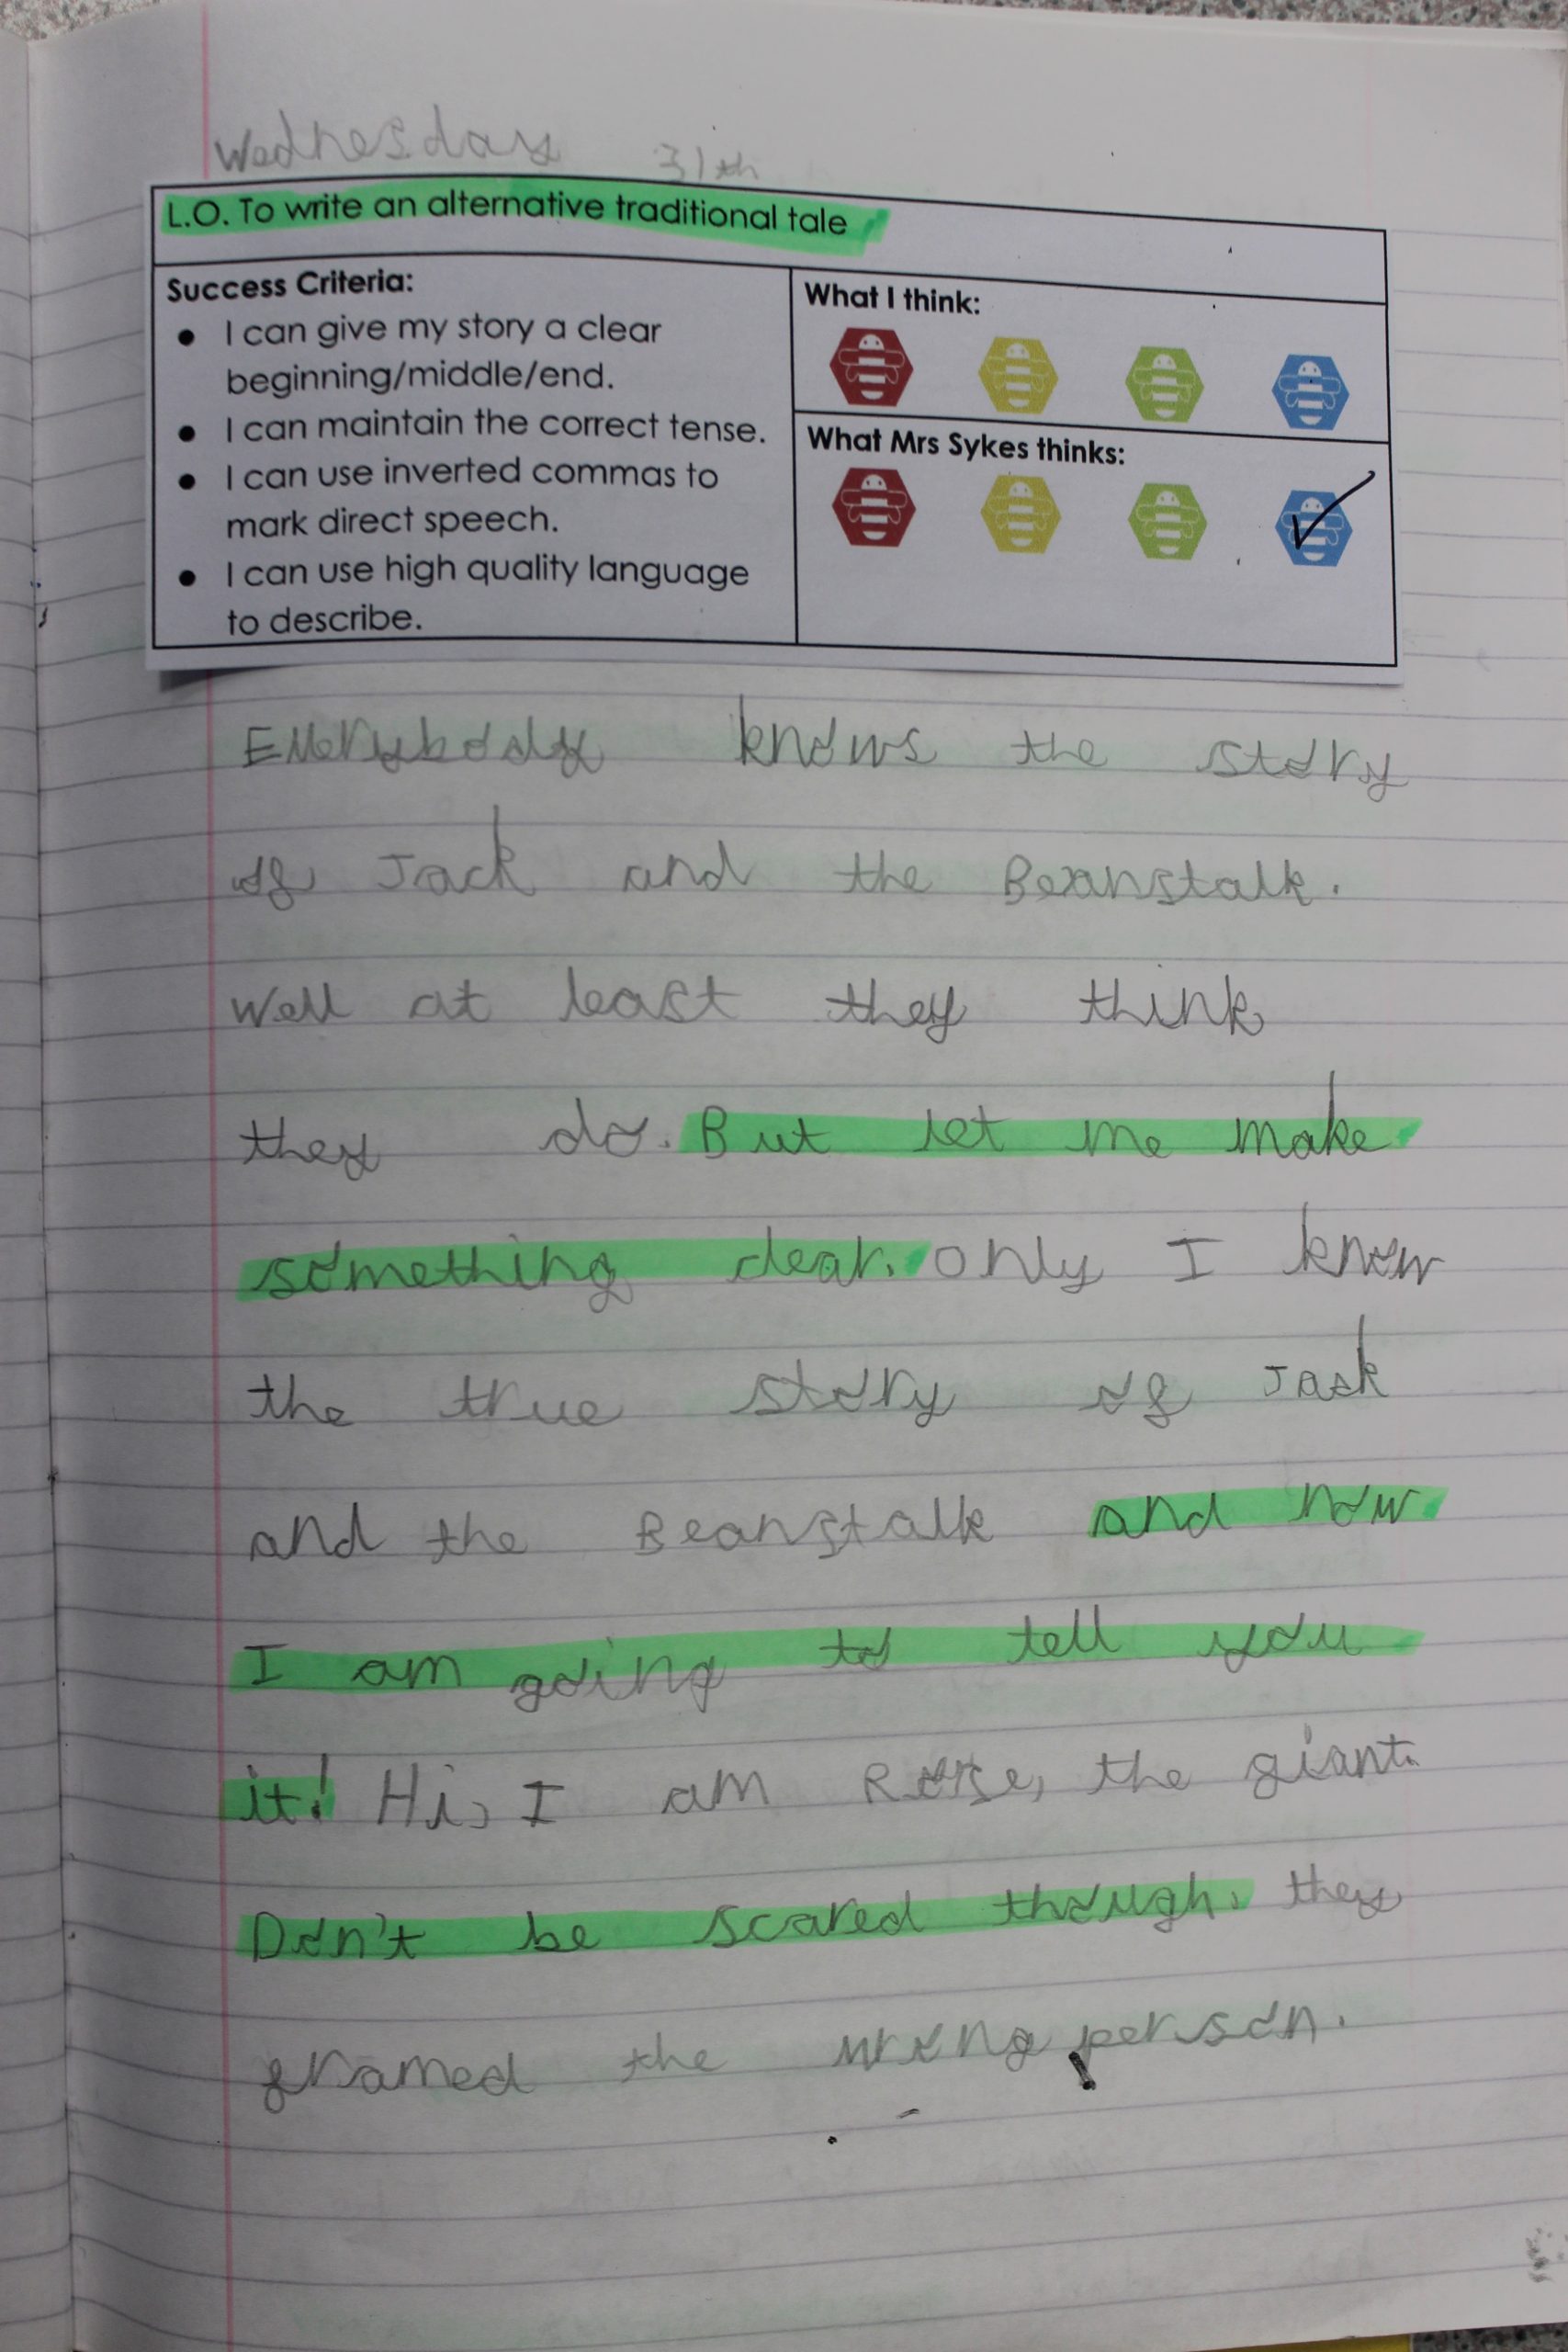 Wednesday 31th
L.O. To write an alternative traditional tale
Success Criteria:
• I can give my story a clear
beginning/middle/end.
• I can maintain the correct tense.
• I can use inverted commas to
mark direct speech.
• I can use high quality language
to describe.
What I think:
What Mrs Sykes thinks:
Everybody knows the story
of Jack and the Beanstalk.
Well at least they think
they do. But let me make
something clear. only I know
the true story of Jack
and the Beanstalk and now
I am going to tell you
it! Hi, I am Rose, the giant.
Don't be scared though. they
framed the wrong person.